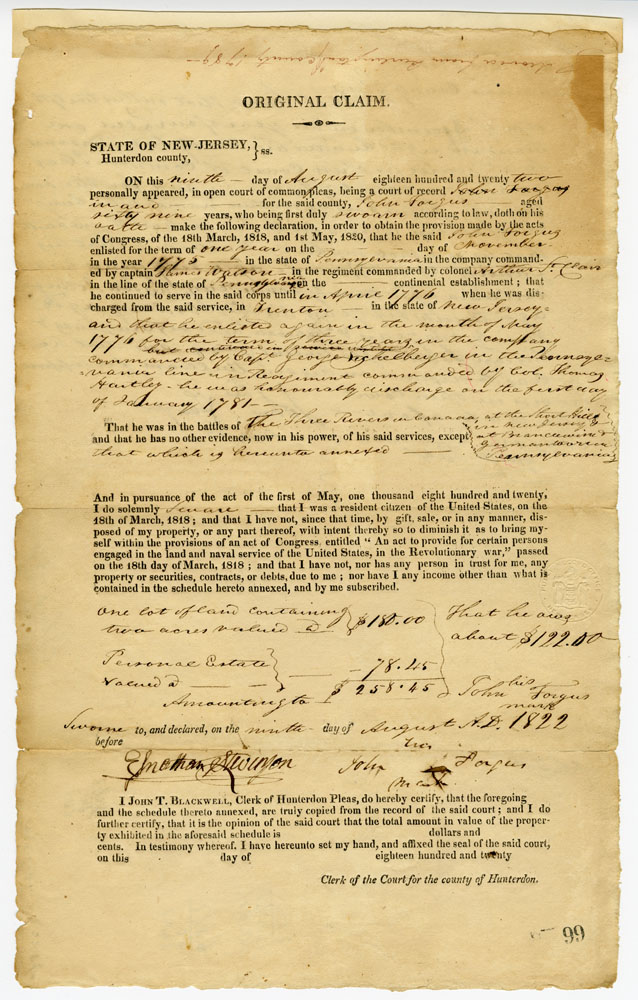 ORIGINAL CLAIM.
STATE OF NEW-JERSEY, } ss.
Hunterdon county,
ON this ninth day of August eighteen hundred and twenty two
personally appeared, in open court of common pleas, being a court of record John Fargus
in and for the said county, John Forgus aged
sixty nine years, who being first duly sworn according to law, doth on his
oath make the following declaration, in order to obtain the provision made by the acts
of Congress, of the 18th March, 1818, and 1st May, 1820, that he the said John Forgus
enlisted for the term of one year on the day of November
in the year 1775 in the state of Pennsylvania in the company command-
ed by captain Watson in the regiment commanded by colonel Arthur St. Clair
in the line of the state of Pennsylvania on the continental establishment; that
he continued to serve in the said corps until in April 1776 when he was dis-
charged from the said service, in Trenton in the state of New Jersey
and that he enlisted again in the month of May
1776 for the term of three years in the company
but continued in
commanded by Capt. George in the Pennsyl-
vania line in Regiment commanded by Col. Thomas
Hartley - he was honourably discharge on the first day
of January 1781
That he was in the battles of The Three Rivers in Canada, at the Short Hills
in New Jersey &
and that he has no other evidence, now in his power, of his said services, except
at Brandewine
Germantown in
Pennsylvania
that which is hereunto annexed
And in pursuance of the act of the first of May, one thousand eight hundred and twenty,
I do solemnly Sweare that I was a resident citizen of the United States, on the
18th of March, 1818; and that I have not, since that time, by gift, sale, or in any manner, dis-
posed of my property, or any part thereof, with intent thereby so to diminish it as to bring my-
self within the provisions of an act of Congress, entitled "An act to provide for certain persons
engaged in the land and naval service of the United States, in the Revolutionary war," passed
on the 18th day of March, 1818; and that I have not, nor has any person in trust for me, any
property or securities, contracts, or debts, due to me; nor have I any income other than what is
contained in the schedule hereto annexed, and by me subscribed.
One lot of land containing
two acres valued @ } $180.00
That he owes
about $122.00
Personal Estate
Valued @ } 78.45
Amounting to $258.45
John his Forgus
mark
Sworne to, and declared, on the ninth day of August A.D. 1822
before
John his Forgus
mark
I JOHN T. BLACKWELL, Clerk of Hunterdon Pleas, do hereby certify, that the foregoing
and the schedule thereto annexed, are truly copied from the record of the said court; and I do
further certify, that it is the opinion of the said court that the total amount in value of the proper-
ty exhibited in the aforesaid schedule is dollars and
cents. In testimony whereof, I have hereunto set my hand, and affixed the seal of the said court,
on this day of eighteen hundred and twenty
Clerk of the Court for the county of Hunterdon.
99